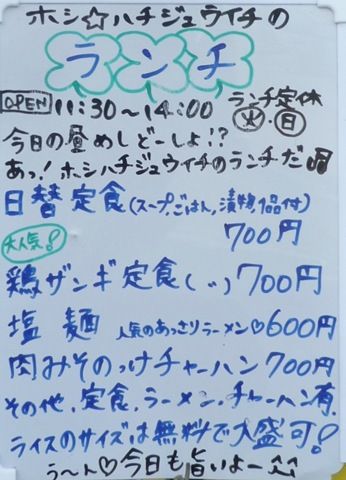 ホシ☆ハチジュウイチの
ランチ
OPEN 11:30〜14:00 ランチ定休
火・日
今日の昼めしどーしよ!?
あっ!ホシハチジュウイチのランチだ
日替定食(スープ、ごはん、漬物、1品付)
700円
大人気!
鶏ザンギ定食(〃)700円
塩麺 人気のあっさりラーメン♡600円
肉みそのっけチャーハン700円
その他、定食、ラーメン、チャーハン有。
ライスのサイズは無料で大盛可!
う〜ト♡今日も旨いよー^^